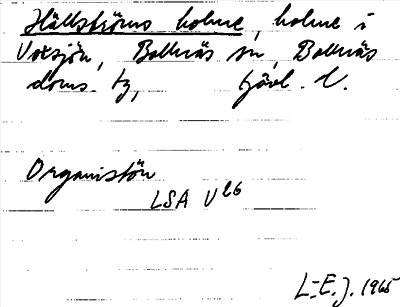 Hällströms holme, holme i
Voxsjön, Bollnäs sn, Bollnäs
doms. tg, Gävl. l.
Organistön
LSA V26
L-E.J. 1965